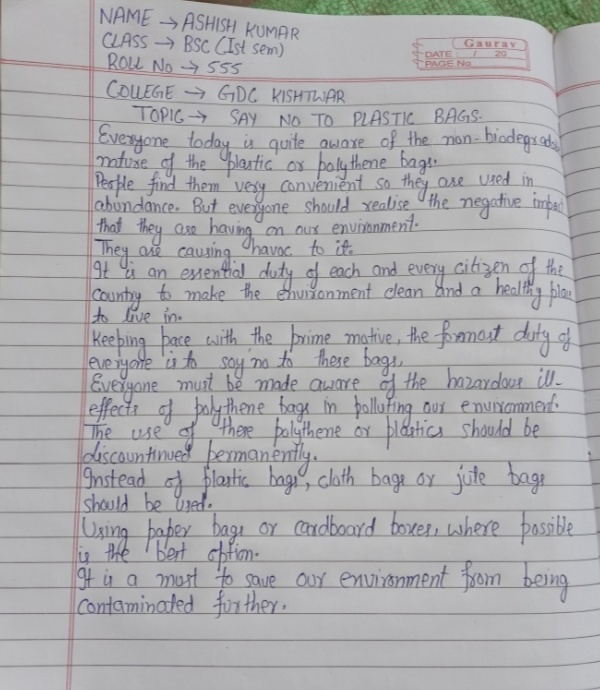 NAME → ASHISH KUMAR
CLASS → BSC (Ist sem)
Gaurav
DATE: / / 20
PAGE No.
ROLL No → 555
COLLEGE → GDC KISHTWAR
TOPIC → SAY NO TO PLASTIC BAGS.
Everyone today is quite aware of the non-biodegrada
nature of the plastic or polythene bags.
People find them very convenient so they are used in
abundance. But everyone should realise the negative impact
that they are having on our environment.
They are causing havoc to it.
It is an essential duty of each and every citizen of the
country to make the environment clean and a healthy place
to live in.
Keeping pace with the prime motive, the formost duty of
everyone is to say no to these bags,
Everyone must be made aware of the hazardous ill-
effects of polythene bags in polluting our environment.
The use of these polythene or plastics should be
discountinued permanently.
Instead of plastic bags, cloth bags or jute bags
should be used.
Using paper bags or cardboard boxes, where possible
is the best option.
It is a must to save our environment from being
contaminated further.